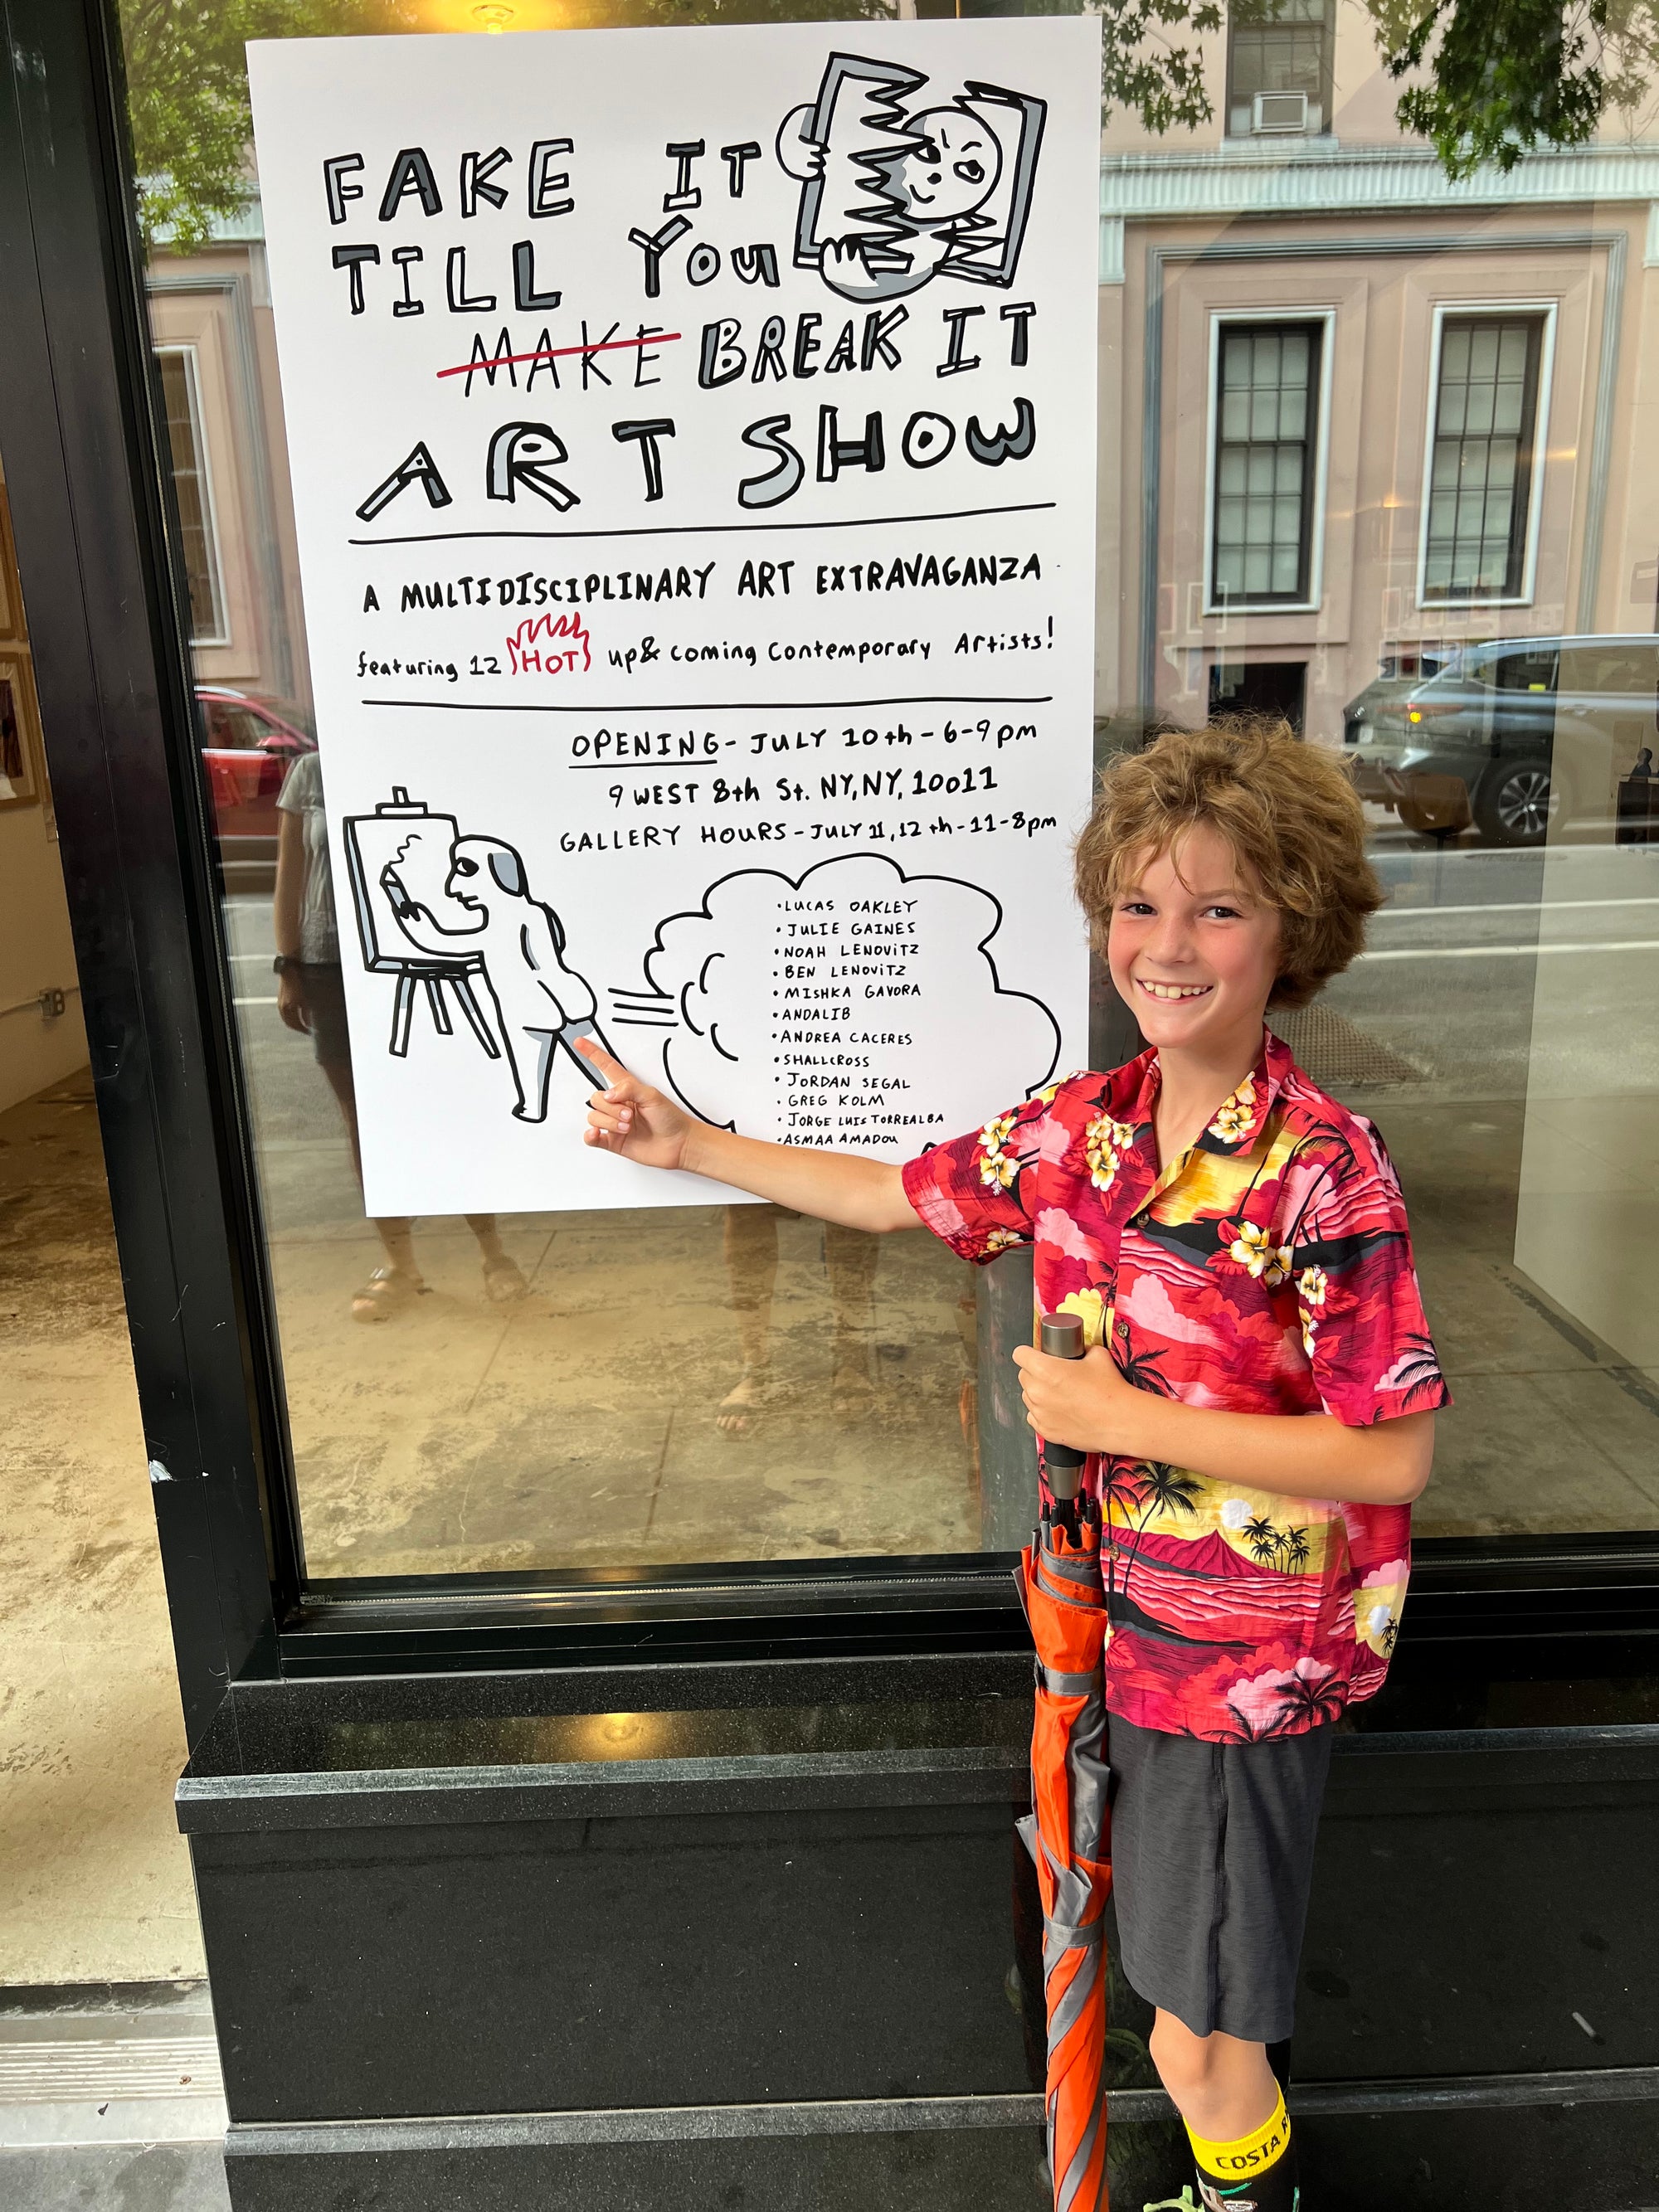 FAKE IT
TILL YOU
MAKE BREAK IT
ART SHOW
A MULTIDISCIPLINARY ART EXTRAVAGANZA
featuring 12 HOT up & coming contemporary Artists!
OPENING - JULY 10th - 6-9 pm
9 WEST 8th St. NY, NY, 10011
GALLERY HOURS - JULY 11, 12th - 11-8pm
• LUCAS OAKLEY
• JULIE GAINES
• NOAH LENOViTZ
• BEN LENOViTZ
• MISHKA GAVORA
• ANDALIB
• ANDREA CACERES
• SHALLCROSS
• JORDAN SEGAL
• GREG KOLM
• JORGE LUIS TORREALBA
• ASMAA AMADOU
COSTA